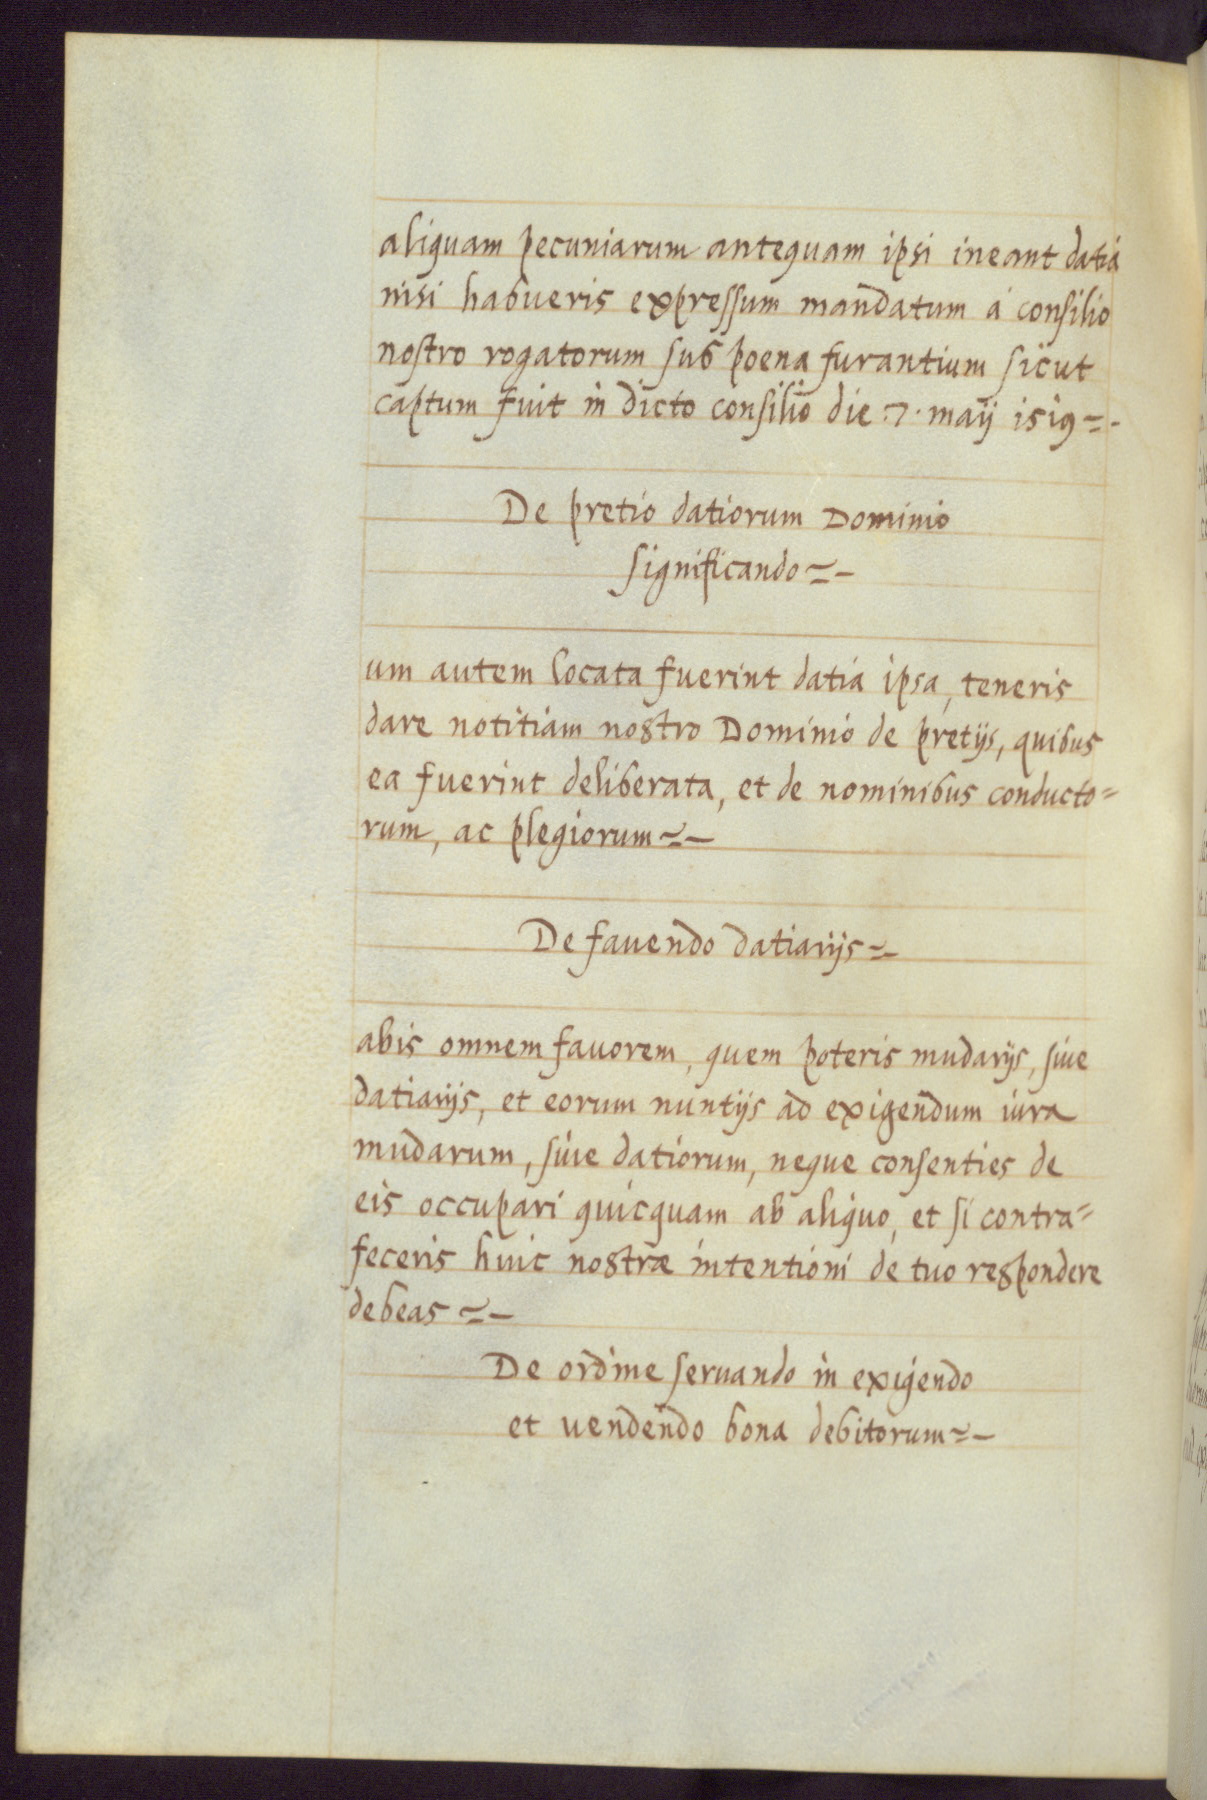 aliquam pecuniarum antequam ipsi ineant datia
nisi habueris expressum mandatum à consilio
nostro rogatorum sub poena furantium sicut
captum fuit in dicto consilio die .7. maÿ 1519 =-
De pretio datiorum Dominio
significando =-
um autem locata fuerint datia ipsa, teneris
dare notitiam nostro Dominio de pretijs, quibus
ea fuerint deliberata, et de nominibus conducto=
rum, ac plegiorum =-
De fauendo datiarijs =-
abis omnem fauorem, quem poteris mudarijs, siue
datiarijs, et eorum nuntijs ad exigendum iura
mudarum, siue datiorum, neque consenties de
eis occupari quicquam ab aliquo, et si contra=
feceris huic nostræ intentioni de tuo respondere
debeas =-
De ordine seruando in exigendo
et uendendo bona debitorum =-